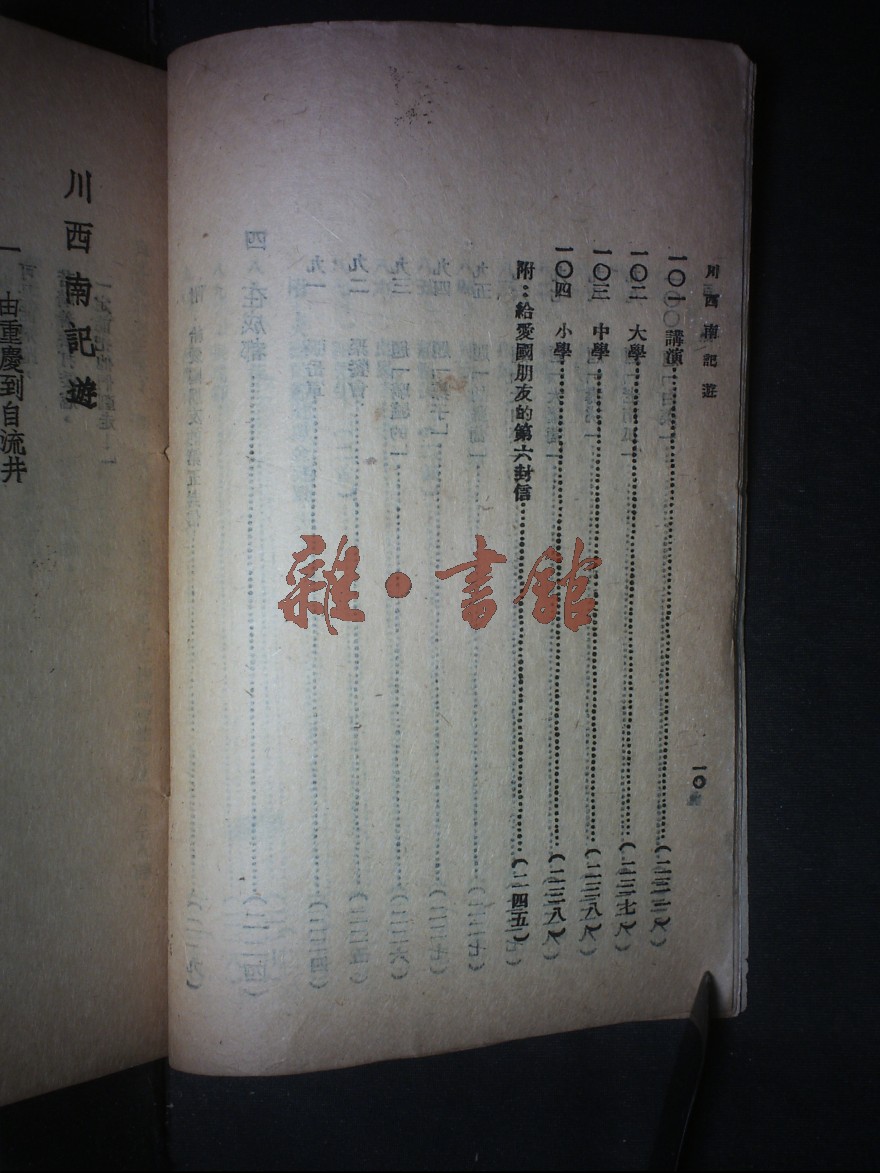 川西南記遊
一〇
一〇一 講演……(二三二)
一〇二 大學……(二三七)
一〇三 中學……(二三八)
一〇四 小學……(二三八)
附：給愛國朋友的第六封信……(二四五)
川西南記遊
一 由重慶到自流井
雜·書館